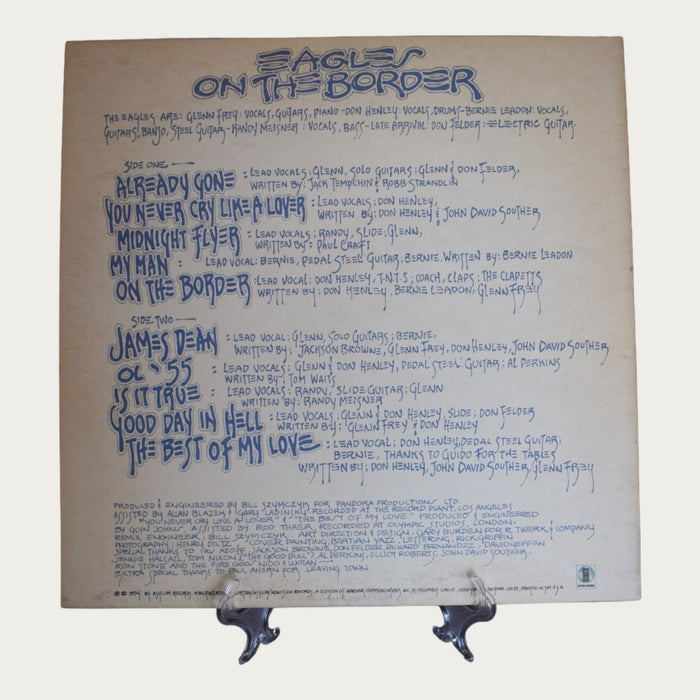 EAGLES
ON THE BORDER
THE EAGLES ARE: GLENN FREY: VOCALS, GUITARS, PIANO-DON HENLEY: VOCALS, DRUMS-BERNIE LEADON: VOCALS,
GUITARS, BANJO, STEEL GUITAR-RANDY MEISNER: VOCALS, BASS-LATE ARRIVAL: DON FELDER: ELECTRIC GUITAR.
SIDE ONE
ALREADY GONE : LEAD VOCALS: GLENN, SOLO GUITARS: GLENN & DON FELDER,
WRITTEN BY: JACK TEMPCHIN & ROBB STRANDLIN
YOU NEVER CRY LIKE A LOVER : LEAD VOCALS: DON HENLEY,
WRITTEN BY: DON HENLEY & JOHN DAVID SOUTHER
MIDNIGHT FLYER : LEAD VOCALS: RANDY, SLIDE: GLENN,
WRITTEN BY: PAUL CRAFT
MY MAN : LEAD VOCAL: BERNIE, PEDAL STEEL GUITAR: BERNIE. WRITTEN BY: BERNIE LEADON
ON THE BORDER : LEAD VOCAL: DON HENLEY, T.N.T.S: COACH, CLAPS: THE CLAPETTS
WRITTEN BY: DON HENLEY, BERNIE LEADON, GLENN FREY
SIDE TWO
JAMES DEAN : LEAD VOCAL: GLENN, SOLO GUITARS: BERNIE,
WRITTEN BY: JACKSON BROWNE, GLENN FREY, DON HENLEY, JOHN DAVID SOUTHER
OL '55 : LEAD VOCALS: GLENN & DON HENLEY, PEDAL STEEL GUITAR: AL PERKINS
WRITTEN BY: TOM WAITS
IS IT TRUE : LEAD VOCALS: RANDY, SLIDE GUITAR: GLENN
WRITTEN BY: RANDY MEISNER
GOOD DAY IN HELL : LEAD VOCALS: GLENN & DON HENLEY, SLIDE: DON FELDER
WRITTEN BY: GLENN FREY & DON HENLEY
THE BEST OF MY LOVE : LEAD VOCAL: DON HENLEY, PEDAL STEEL GUITAR:
BERNIE, THANKS TO GUIDO FOR THE TABLES
WRITTEN BY: DON HENLEY, JOHN DAVID SOUTHER, GLENN FREY
PRODUCED & ENGINEERED BY BILL SZYMCZYK FOR PANDORA PRODUCTIONS LTD.
ASSISTED BY ALLAN BLAZEK & GARY LADINSKY RECORDED AT THE RECORD PLANT, LOS ANGELES
"YOU NEVER CRY LIKE A LOVER" & "THE BEST OF MY LOVE" PRODUCED & ENGINEERED
BY GLYN JOHNS, ASSISTED BY ROD THAER, RECORDED AT OLYMPIC STUDIOS, LONDON.
REMIX ENGINEER: BILL SZYMCZYK. ART DIRECTION & DESIGN: GARY BURDEN FOR R. TWERK & COMPANY
PHOTOGRAPHY: HENRY DILTZ COVER PAINTING: BEATIAN YAZZ LETTERING: RICK GRIFFIN
SPECIAL THANKS TO IRV AZOFF, JACKSON BROWNE, DON FELDER, RICHARD FERNANDEZ, DAVID GEFFEN
JENNIE HALSALL, TOM NIXON (THE GOOD BILL) AL PERKINS, ELLIOT ROBERTS, JOHN DAVID SOUTHER.
RON STONE AND THE FIRE GODS: NIDO & WOTAN
EXTRA SPECIAL THANKS TO PAUL AHERN FOR LEAVING TOWN
1974 BY ASYLUM RECORDS, A DIVISION OF WARNER COMMUNICATIONS INC. PRINTED IN U.S.A.